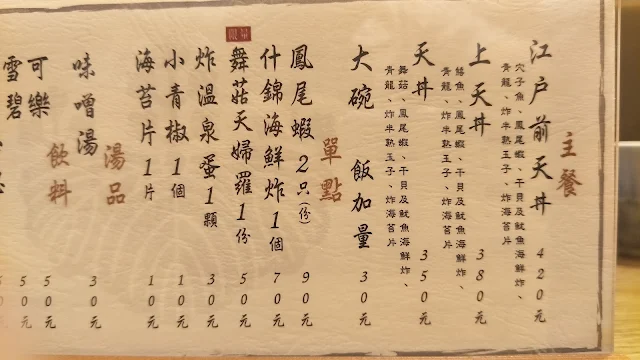 主餐
江戶前天丼 420元
穴子魚、鳳尾蝦、干貝及魷魚海鮮炸、
青龍、炸半熟玉子、炸海苔片
上天丼 380元
鱚魚、鳳尾蝦、干貝及魷魚海鮮炸、
青龍、炸半熟玉子、炸海苔片
天丼 350元
舞菇、鳳尾蝦、干貝及魷魚海鮮炸、
青龍、炸半熟玉子、炸海苔片
大碗 飯加量 30元
單點
鳳尾蝦2只(份) 90元
什錦海鮮炸1個 70元
限量
舞菇天婦羅1份 50元
炸溫泉蛋1顆 30元
小青椒1個 10元
海苔片1片 10元
湯品
味噌湯 30元
飲料
可樂 50元
雪碧 50元